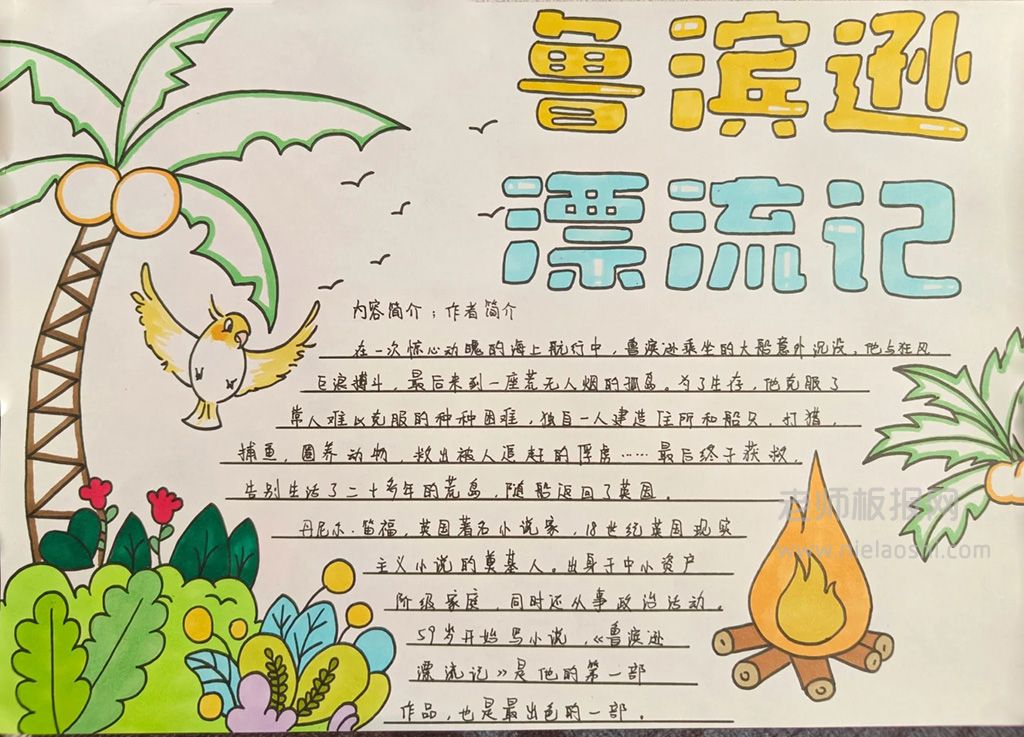 鲁滨逊
漂流记
内容简介；作者简介
在一次惊心动魄的海上航行中，鲁滨逊乘坐的大船意外沉没，他与狂风
巨浪搏斗，最后来到一座荒无人烟的孤岛。为了生存，他克服了
常人难以克服的种种困难，独自一人建造住所和船只，打猎，
捕鱼，圈养动物，救出被人追赶的俘虏……最后终于获救，
告别生活了二十多年的荒岛，随船返回了英国。
丹尼尔·笛福，英国著名小说家，18世纪英国现实
主义小说的奠基人。出身于中小资产
阶级家庭，同时还从事政治活动。
59岁开始写小说，《鲁滨逊
漂流记》是他的第一部
作品，也是最出色的一部。
老师板报网